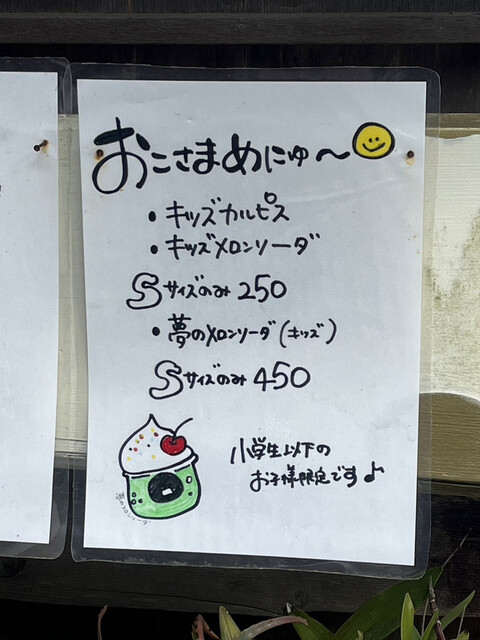 おこさまめにゅ〜
・キッズカルピス
・キッズメロンソーダ
Sサイズのみ 250
・夢のメロンソーダ(キッズ)
Sサイズのみ 450
小学生以下の
お子様限定です♪
夢のメロンソーダ